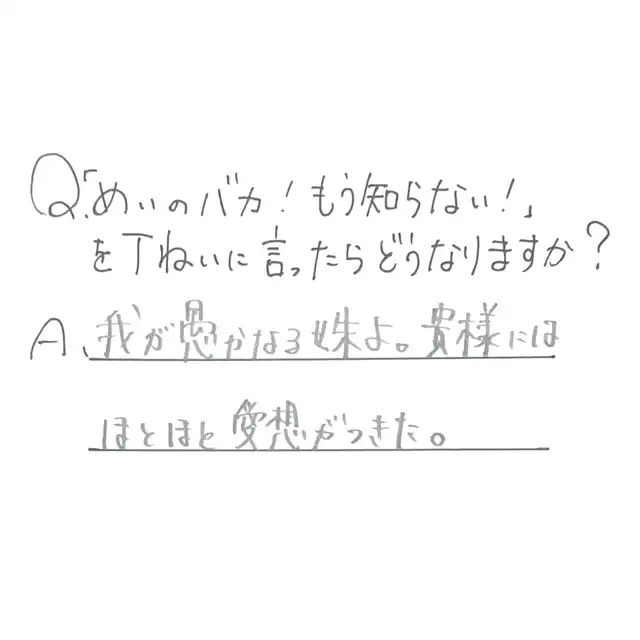 Q.「めいのバカ！もう知らない！」
を丁ねいに言ったらどうなりますか？
A、我が愚かなる妹よ。貴様には
ほとほと愛想がつきた。